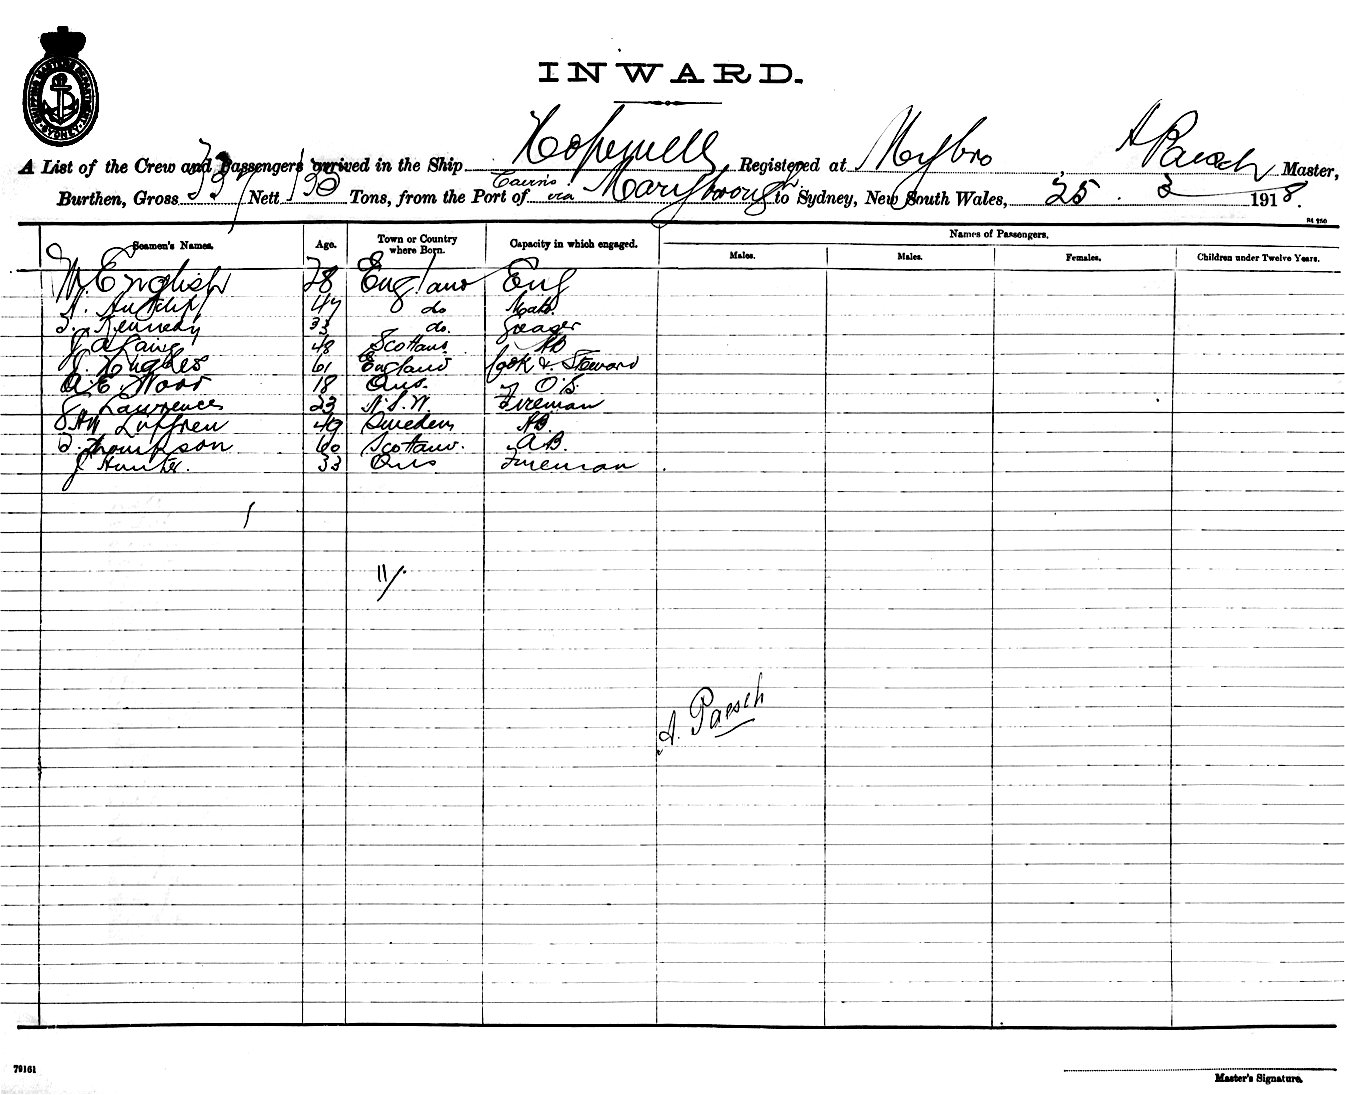 SHIPPING MASTERS DEPARTMENT SYDNEY
INWARD.
A List of the Crew and Passengers arrived in the Ship Hopewell, Registered at Marybro A Paesch Master,
Burthen, Gross Nett 130 Tons, from the Port of Cairns via Maryborough to Sydney, New South Wales, 25. 3 1918.
Seamen's Names. Age. Town or Country where Born. Capacity in which engaged. Names of Passengers.
Males. Males. Females. Children under Twelve Years.
W. English 28 England Eng
47 do Mate
Kennedy 33 do. Greaser
J Laing 48 Scotland AB
J. Hughes 61 England Cook & Steward
A E Wood 18 Qns. O.S.
Lawrence 23 N.S.W. Fireman
49 Sweden AB
Thompson 60 Scotland. AB.
J Hunter. 33 Qns Fireman
11/.
A. Paesch
79161
Master's Signature.